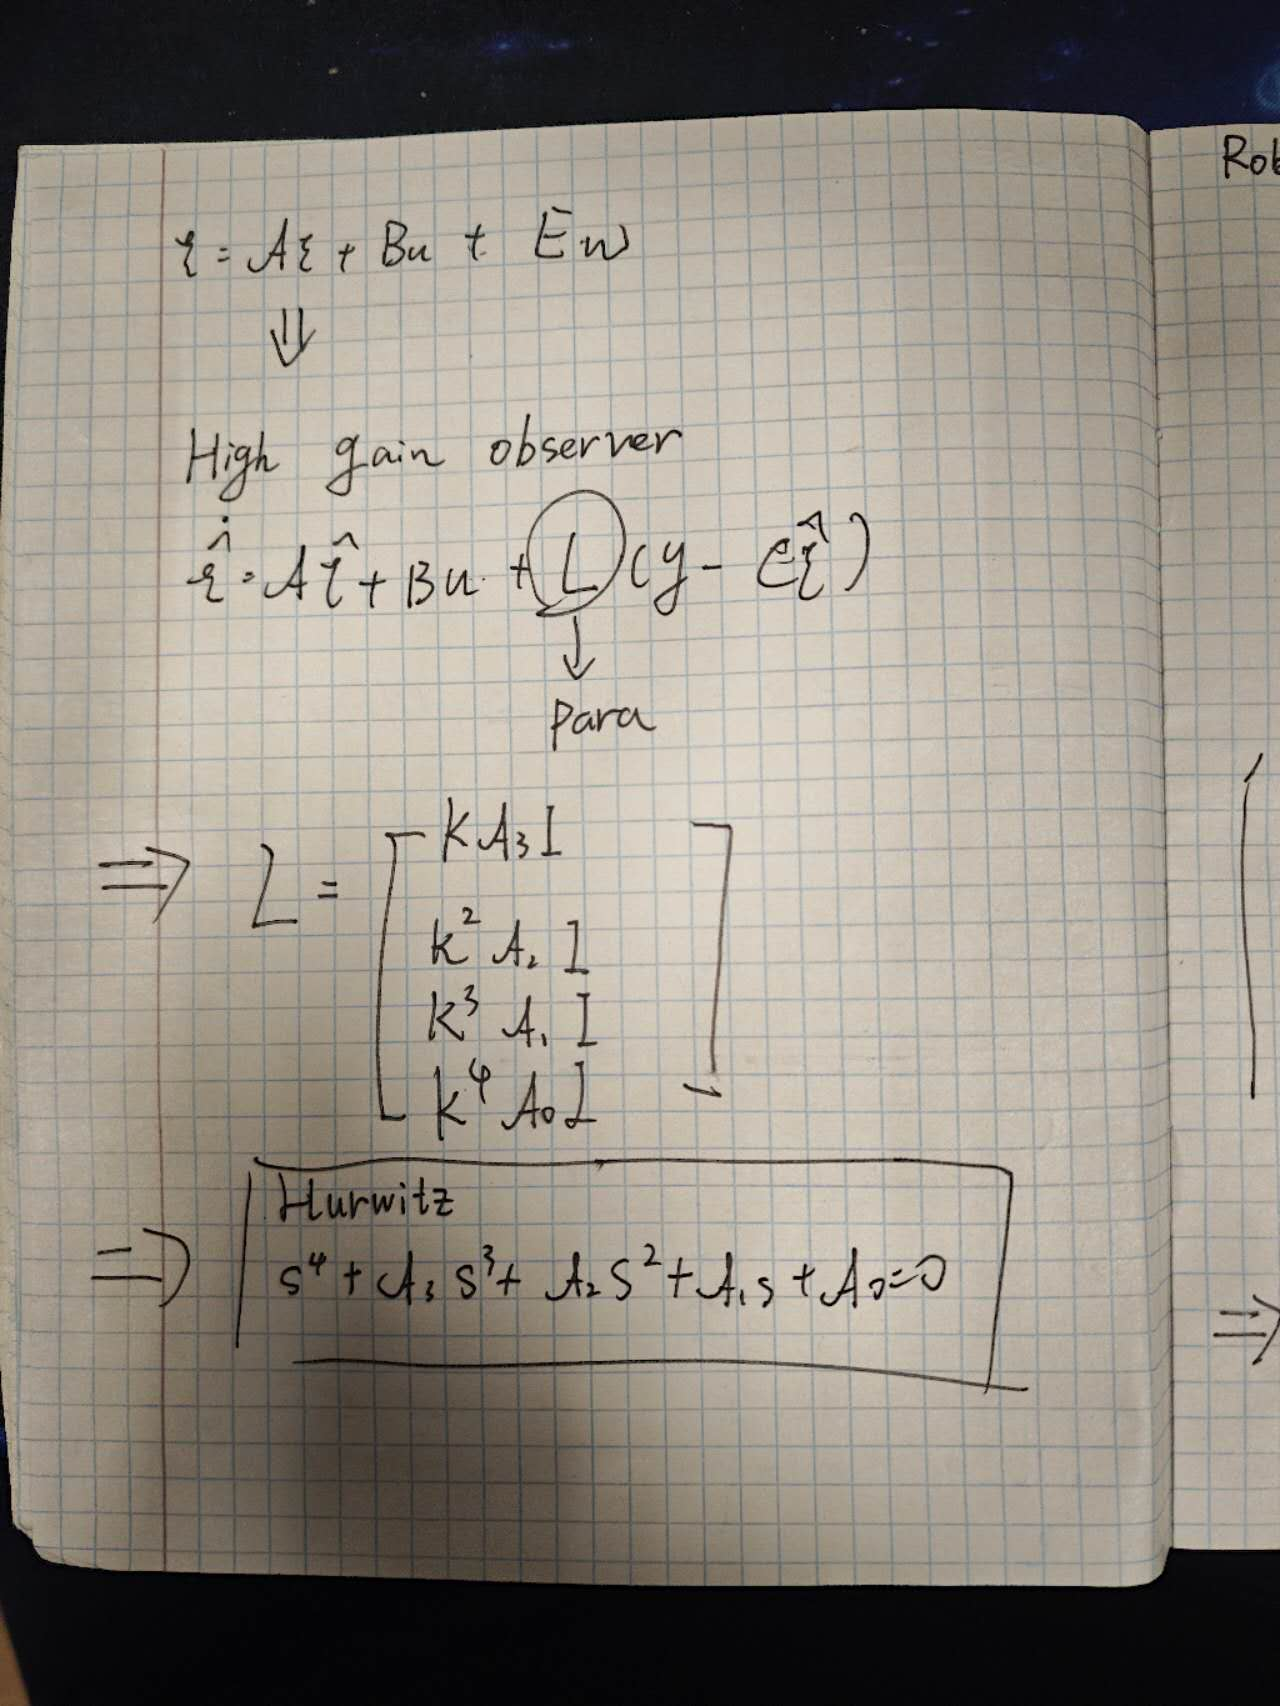 ξ = Aξ + Bu + Ew
⇓
High gain observer
ξ̂̇ = Aξ̂ + Bu + L(y - Cξ̂)
↓
para
⇒ L = [ KA₃I
K² A₂ I
K³ A₁ I
K⁴ A₀ I ]
⇒ Hurwitz
S⁴ + A₃ S³ + A₂ S² + A₁ S + A₀ = 0
Rob
⇒